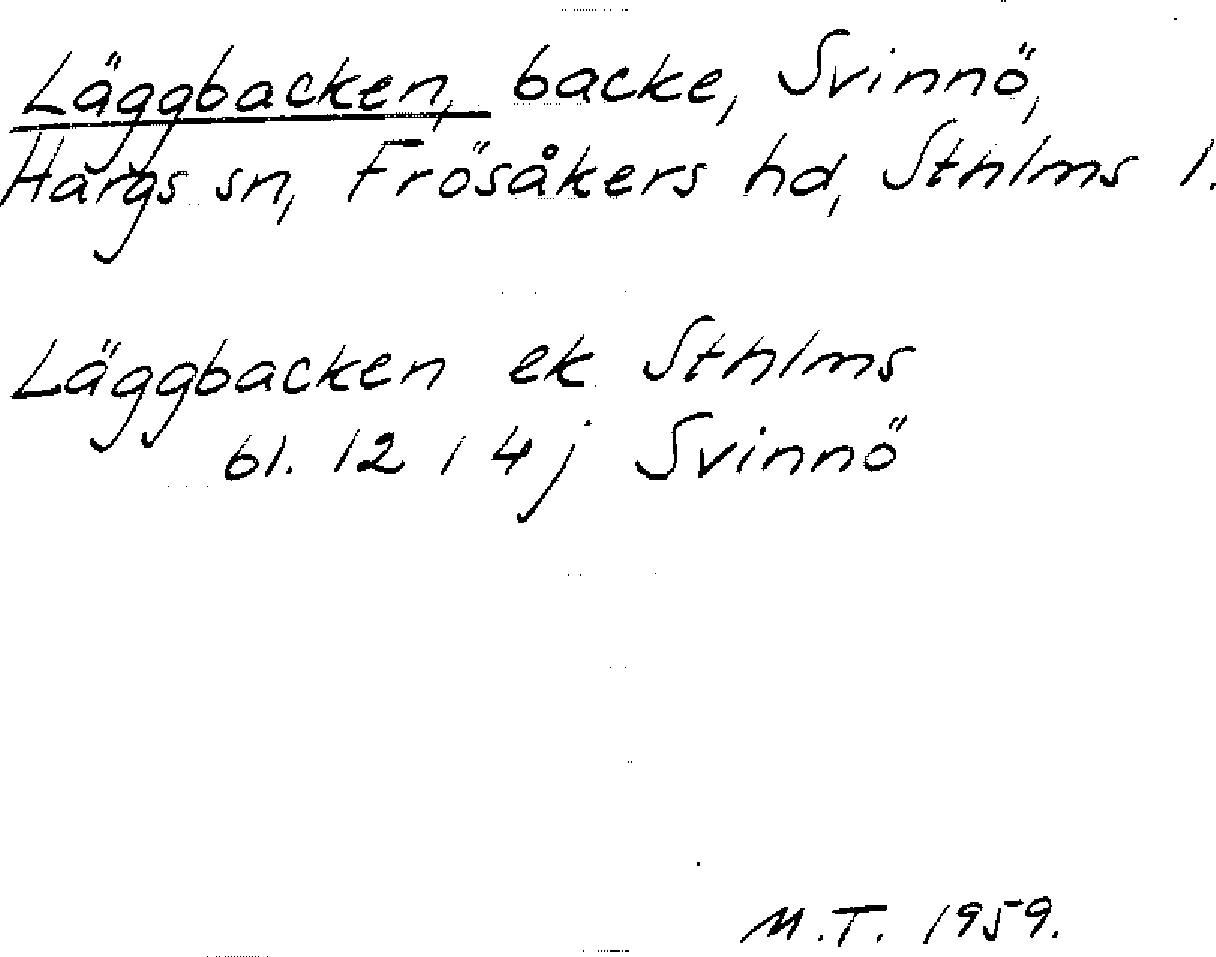 Läggbacken, backe, Svinnö,
Hargs sn, Frösåkers hd, Sthlms l.
Läggbacken ek Sthlms
bl. 12 i 4 j Svinnö
M.T. 1959.